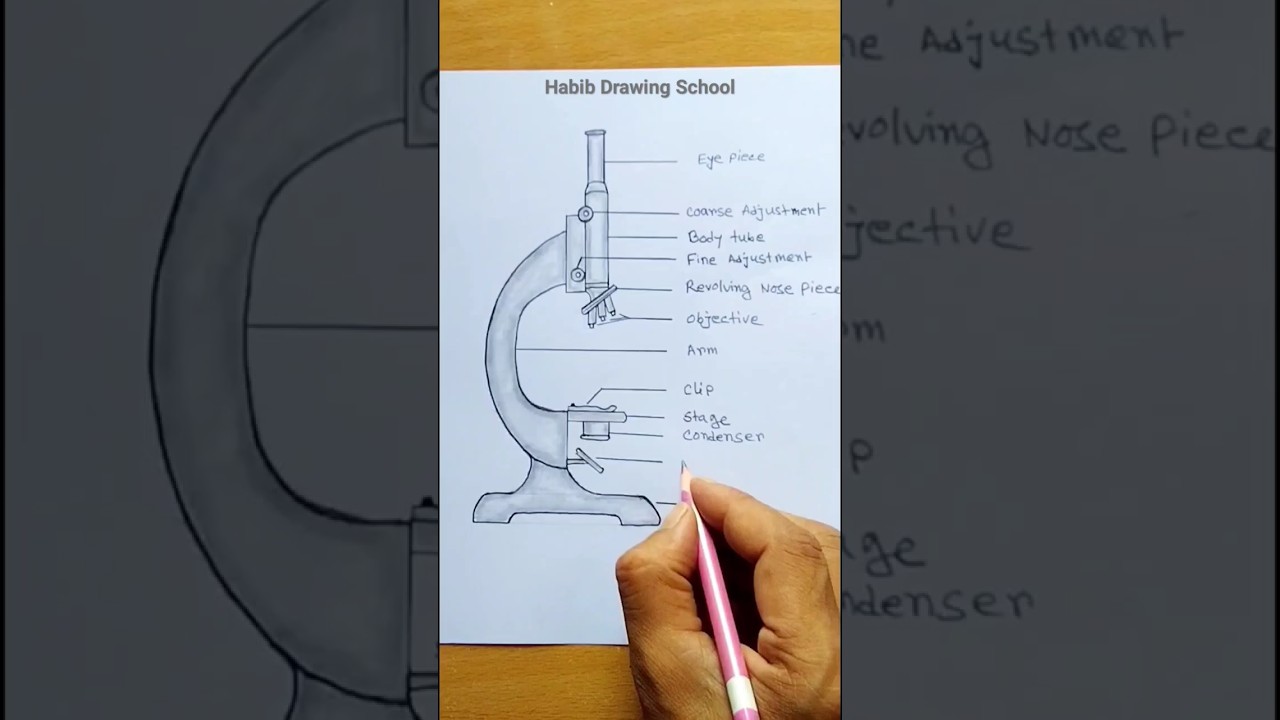 Habib Drawing School
Eye Piece
Coarse Adjustment
Body tube
Fine Adjustment
Revolving Nose Piece
Objective
Arm
Clip
Stage
Condenser
ne Adjustment
volving Nose Piece
jective
m
p
ge
ndenser